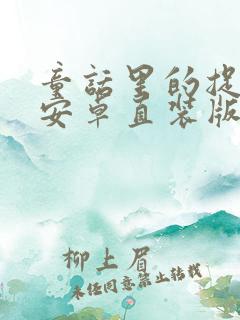 童话里的捉
安卓直装版
柳上眉
未经同意禁止转载